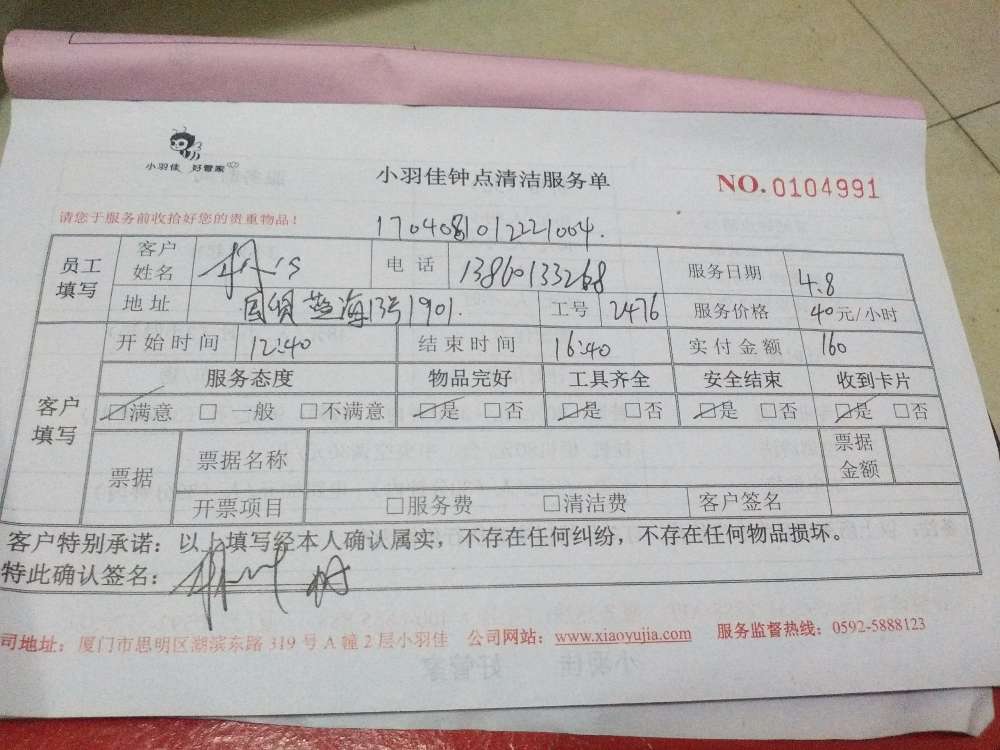 小羽佳 好管家
小羽佳钟点清洁服务单
NO. 0104991
请您于服务前收拾好您的贵重物品！
1704081012221004.
员工填写 客户姓名 电话 13860133268 服务日期 4.8
地址 国贸蓝海13号1901. 工号 2476 服务价格 40元/小时
客户填写 开始时间 12:40 结束时间 16:40 实付金额 160
服务态度 物品完好 工具齐全 安全结束 收到卡片
□满意 □一般 □不满意 □是 □否 □是 □否 □是 □否 □是 □否
票据 票据名称 票据金额
开票项目 □服务费 □清洁费 客户签名
客户特别承诺：以上填写经本人确认属实，不存在任何纠纷，不存在任何物品损坏。
特此确认签名：
司地址：厦门市思明区湖滨东路319号A幢2层小羽佳 公司网站：www.xiaoyujia.com 服务监督热线：0592-5888123